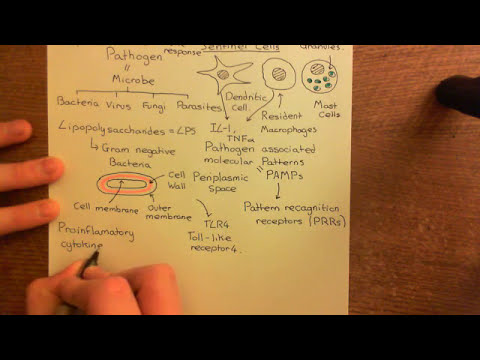 response
Sentinel Cells
Granules.
Pathogen
=
Microbe
Bacteria Virus Fungi Parasites
Dendritic
Cell.
Resident
Macrophages
Mast
Cells
Lipopolysaccharides = LPS
IL-1,
TNFα
Gram negative
Bacteria
Pathogen associated
molecular Patterns
=
PAMPs
Cell
Wall
Periplasmic
space
Cell membrane
Outer
membrane
Pattern recagnition
receptors (PRRs)
TLR4
Toll-like
receptor 4.
Proinflamatory
cytokine